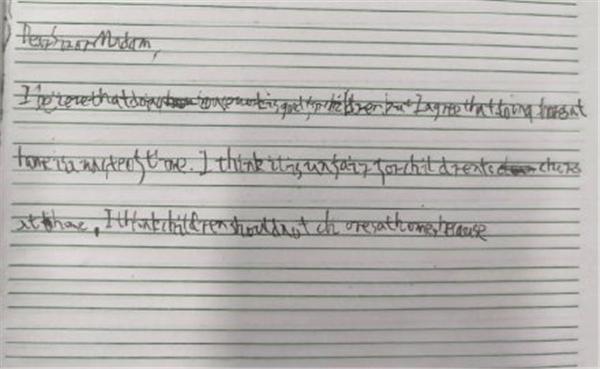 Dear Sir or Madam,
I believe that doing housework is good for children but I agree that doing at
home is a waste of time. I think it is unfair for children to chores
at home, I think children should not chores at home, because